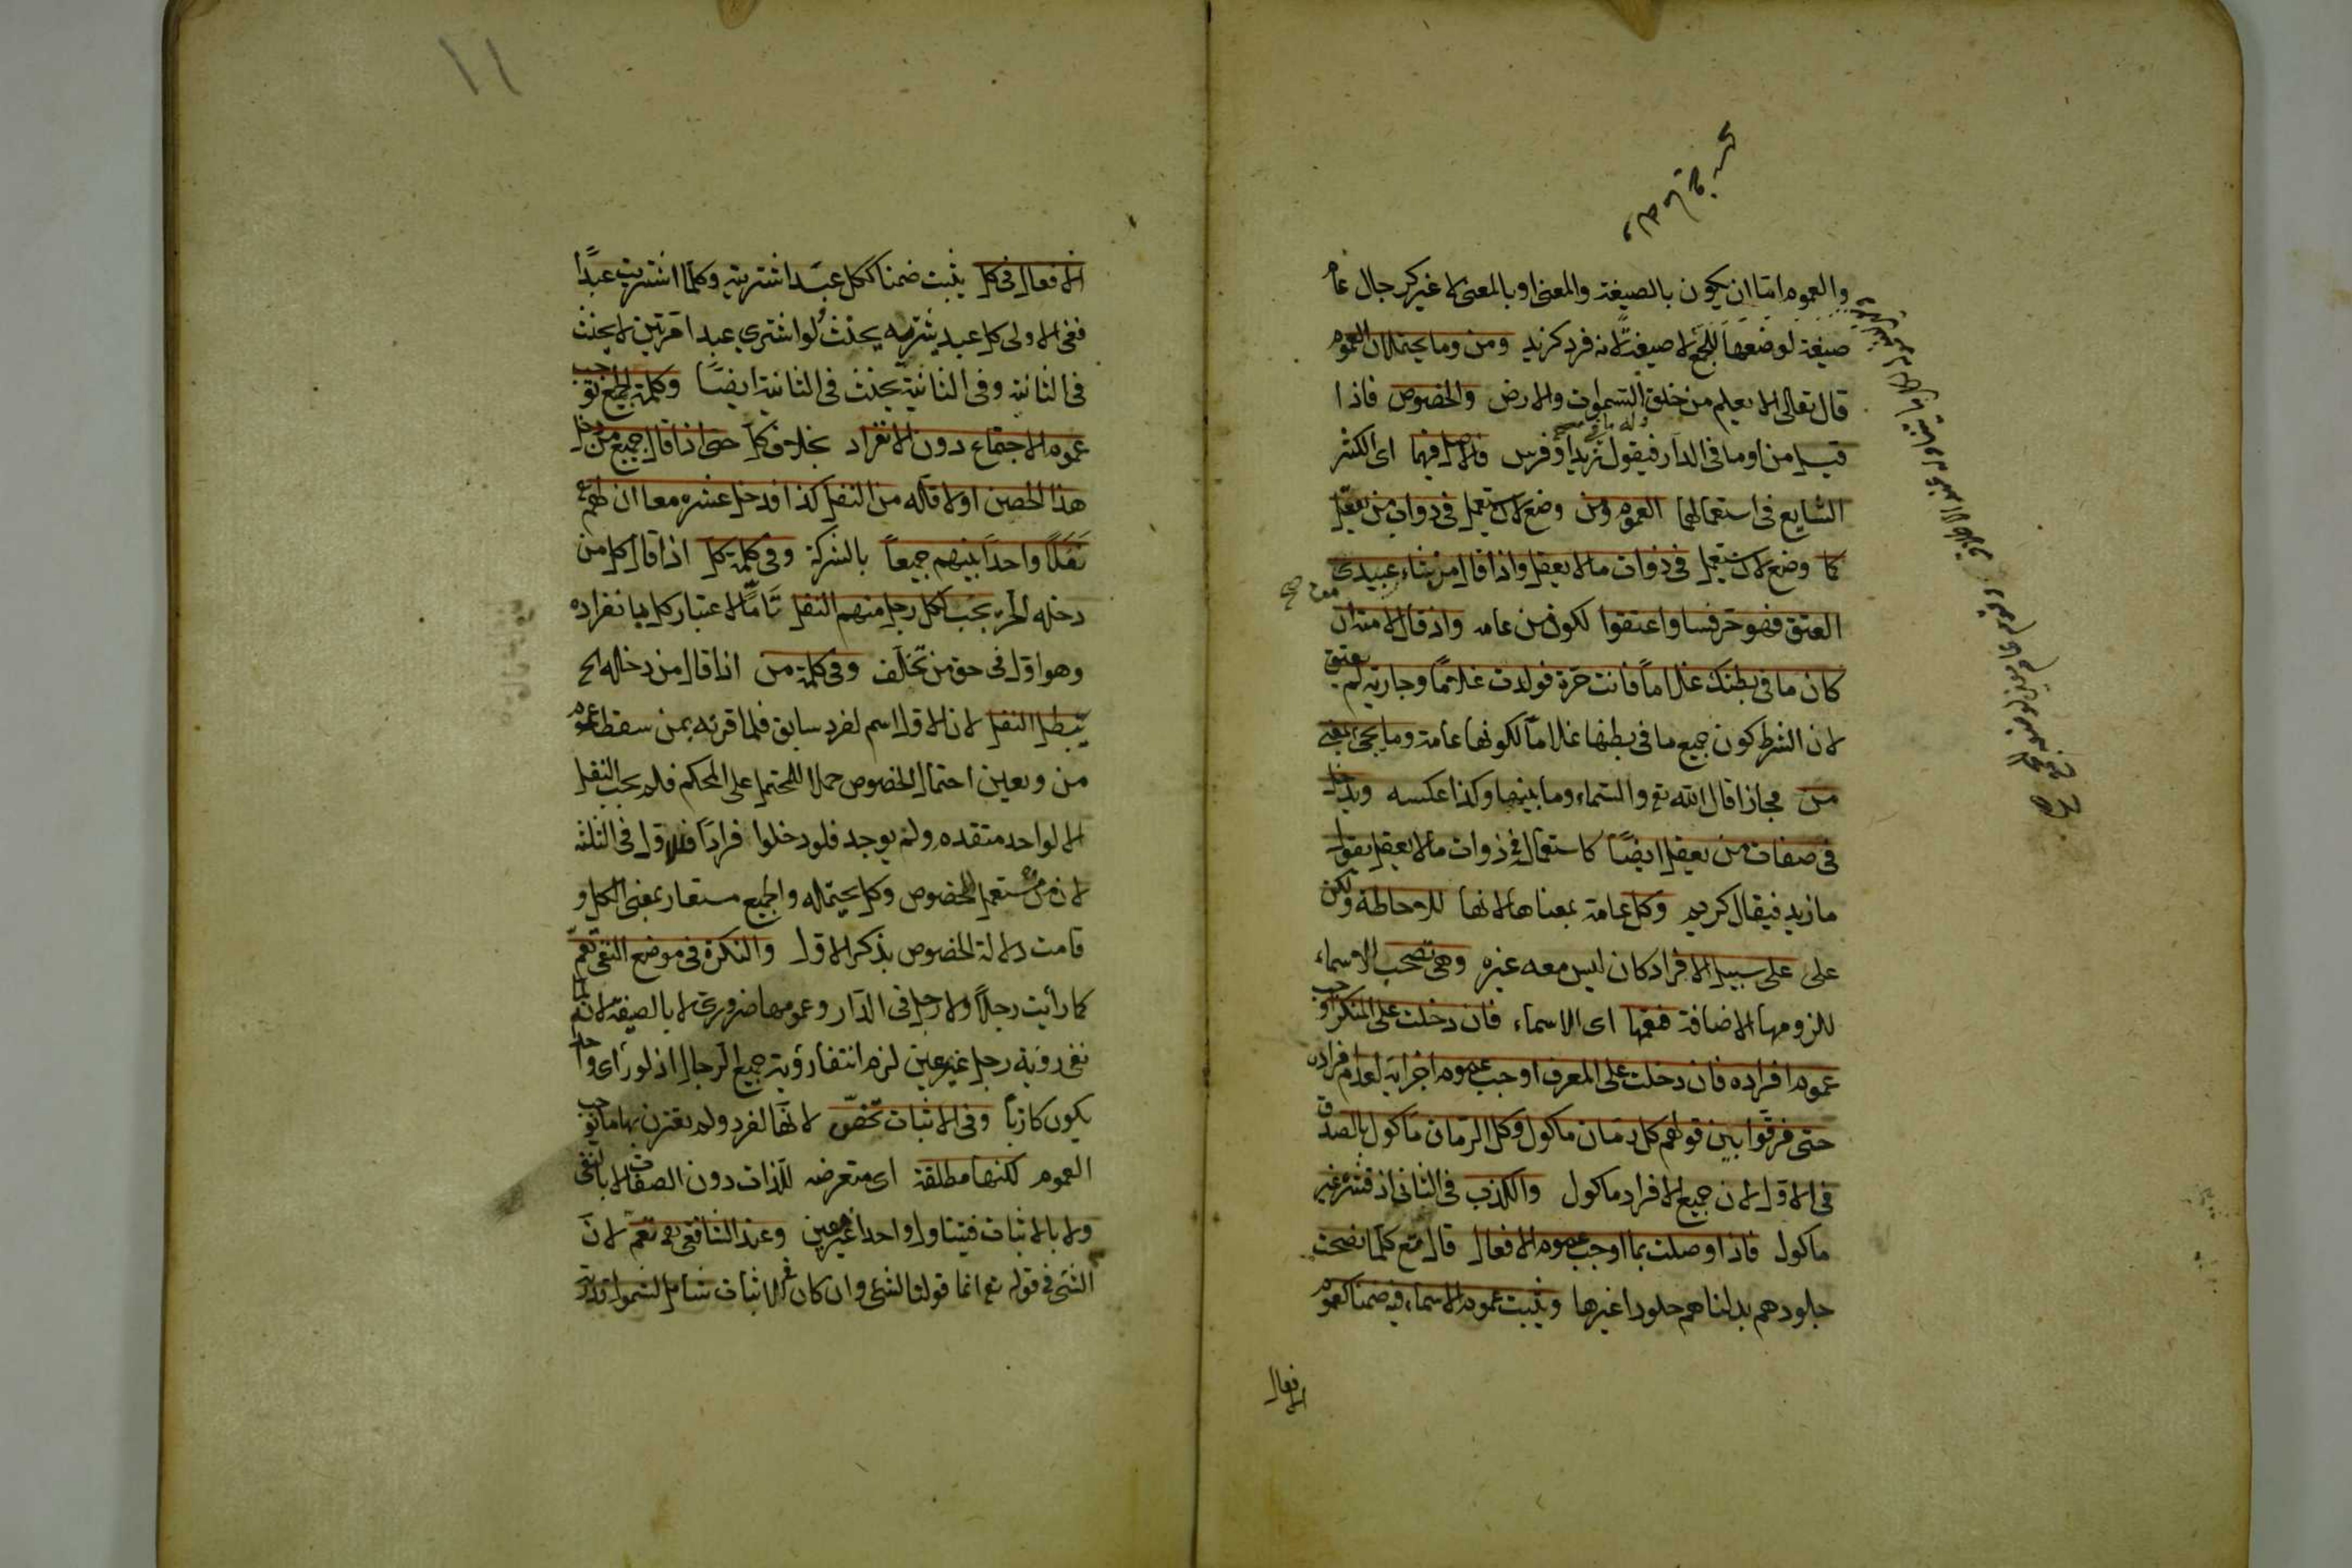 والعموم اما ان يكون بالصيغة والمعنى او بالمعنى لا غير كرجال عام
صيغة لوضعها للجمع لا صيغة لانه فرد كزيد ومن وما يحتملان العموم
قال تعالى الا يعلم من خلق السموات والارض والخصوص فاذا
قيل من او ما فى الدار فيقول زيد او فرس فالاصل فيهما اى الكثر
الشايع فى استعمالهما العموم ومن وضع لان يستعمل فى ذوات من يعقل
كما وضع لان يستعمل فى ذوات ما لا يعقل واذا قال من شاء عبيدى
العتق فهو حر فشاوا عتقوا لكون من عامه واذ قال لامته ان
كان ما فى بطنك غلاماً فانت حرة فولدت غلامًا وجارية لم يعتق
لان الشرط كون جميع ما فى بطنها غلاماً لكونها عامة وما يجئ بمعنى
من مجازا قال الله تع والسماء وما بنيها وكذا عكسه ويدخل
فى صفات من يعقل ايضًا كاستعماله فى ذوات ما لا يعقل يقول
ما زيد فيقال كريم وكل عامة بمعناها لانها للاحاطة ولكن
على على سبيل الافراد كان ليس معه غيره وهى تصحب الاسماء
للزومها الاضافة فتعمها اى الاسماء فان دخلت على المنكر اوجب
عموم افراده فان دخلت على المعرف اوجب عموم اجزائه لعدم افراده
حتى فرقوا بين قولهم كل رمان ماكول وكل الرمان ماكول بالصدق
فى الاول لان جميع الافراد ماكول والكذب فى الثانى اذ قشره غير
ماكول فاذا وصلت بما اوجب عموم الافعال قال تع كلما نضجت
جلودهم بدلناهم جلودا غيرها ويثبت عموم الاسماء فيه ضمنا كعموم
الافعال
١١
الافعال فى كل يثبت ضمنا ككل عبد اشتريته وكلما اشتريت عبدًا
ففى الاولى كل عبد يشتريه يحنث ولو اشترى عبدا مرتين لا يحنث
فى الثانية وفى الثانية يحنث فى الثانية ايضًا وكلمة الجميع توجب
عموم الاجتماع دون الانفراد بخلاف كل حتى اذا قال جميع من دخل
هذا الحصن اولا فله من النفل كذا فدخل عشرة معا ان لهم
نفلا واحدا بينهم جميعاً بالشركة وفى كلمة كل اذا قال كل من
دخله الخ يجب لكل رجل منهم النفل تامًا لاعتبار كل بانفراده
وهو اول فى حق من تخلف وفى كلمة من اذا قال من دخله الخ
يبطل النفل لان الاول اسم لفرد سابق فلما قرنه بمن سقط عموم
من وتعين احتمال الخصوص حملا للمحتمل على المحكم فلم يجب النفل
الا لواحد متقدم ولم يوجد فلو دخلوا فرادا فللاول فى الثلثة
لان من يستعمل للخصوص وكل يحتمله والجميع مستعار بمعنى الكل او
قامت دلالة الخصوص بذكر الاول والنكرة فى موضع النفى تعم
كما رأيت رجلاً ولا رجل فى الدار وعمومها ضرورى لا بالصيغة لانه لما
نفى رؤية رجل غير عين لزم انتفاء رؤية جميع الرجال اذ لو رأى واحدا
يكون كاذباً وفى الاثبات تخص لانها لفرد ولم يقترن بها ما يوجب
العموم لكنها مطلقة اى متعرضه للذات دون الصفات لا بالنفى
ولا بالاثبات فيتناول واحدا غير معين وعند الشافعى تعم لان
الشئ فى قوله تع انما قولنا لشئ وان كان فى الاثبات شامل لشمول قدرته